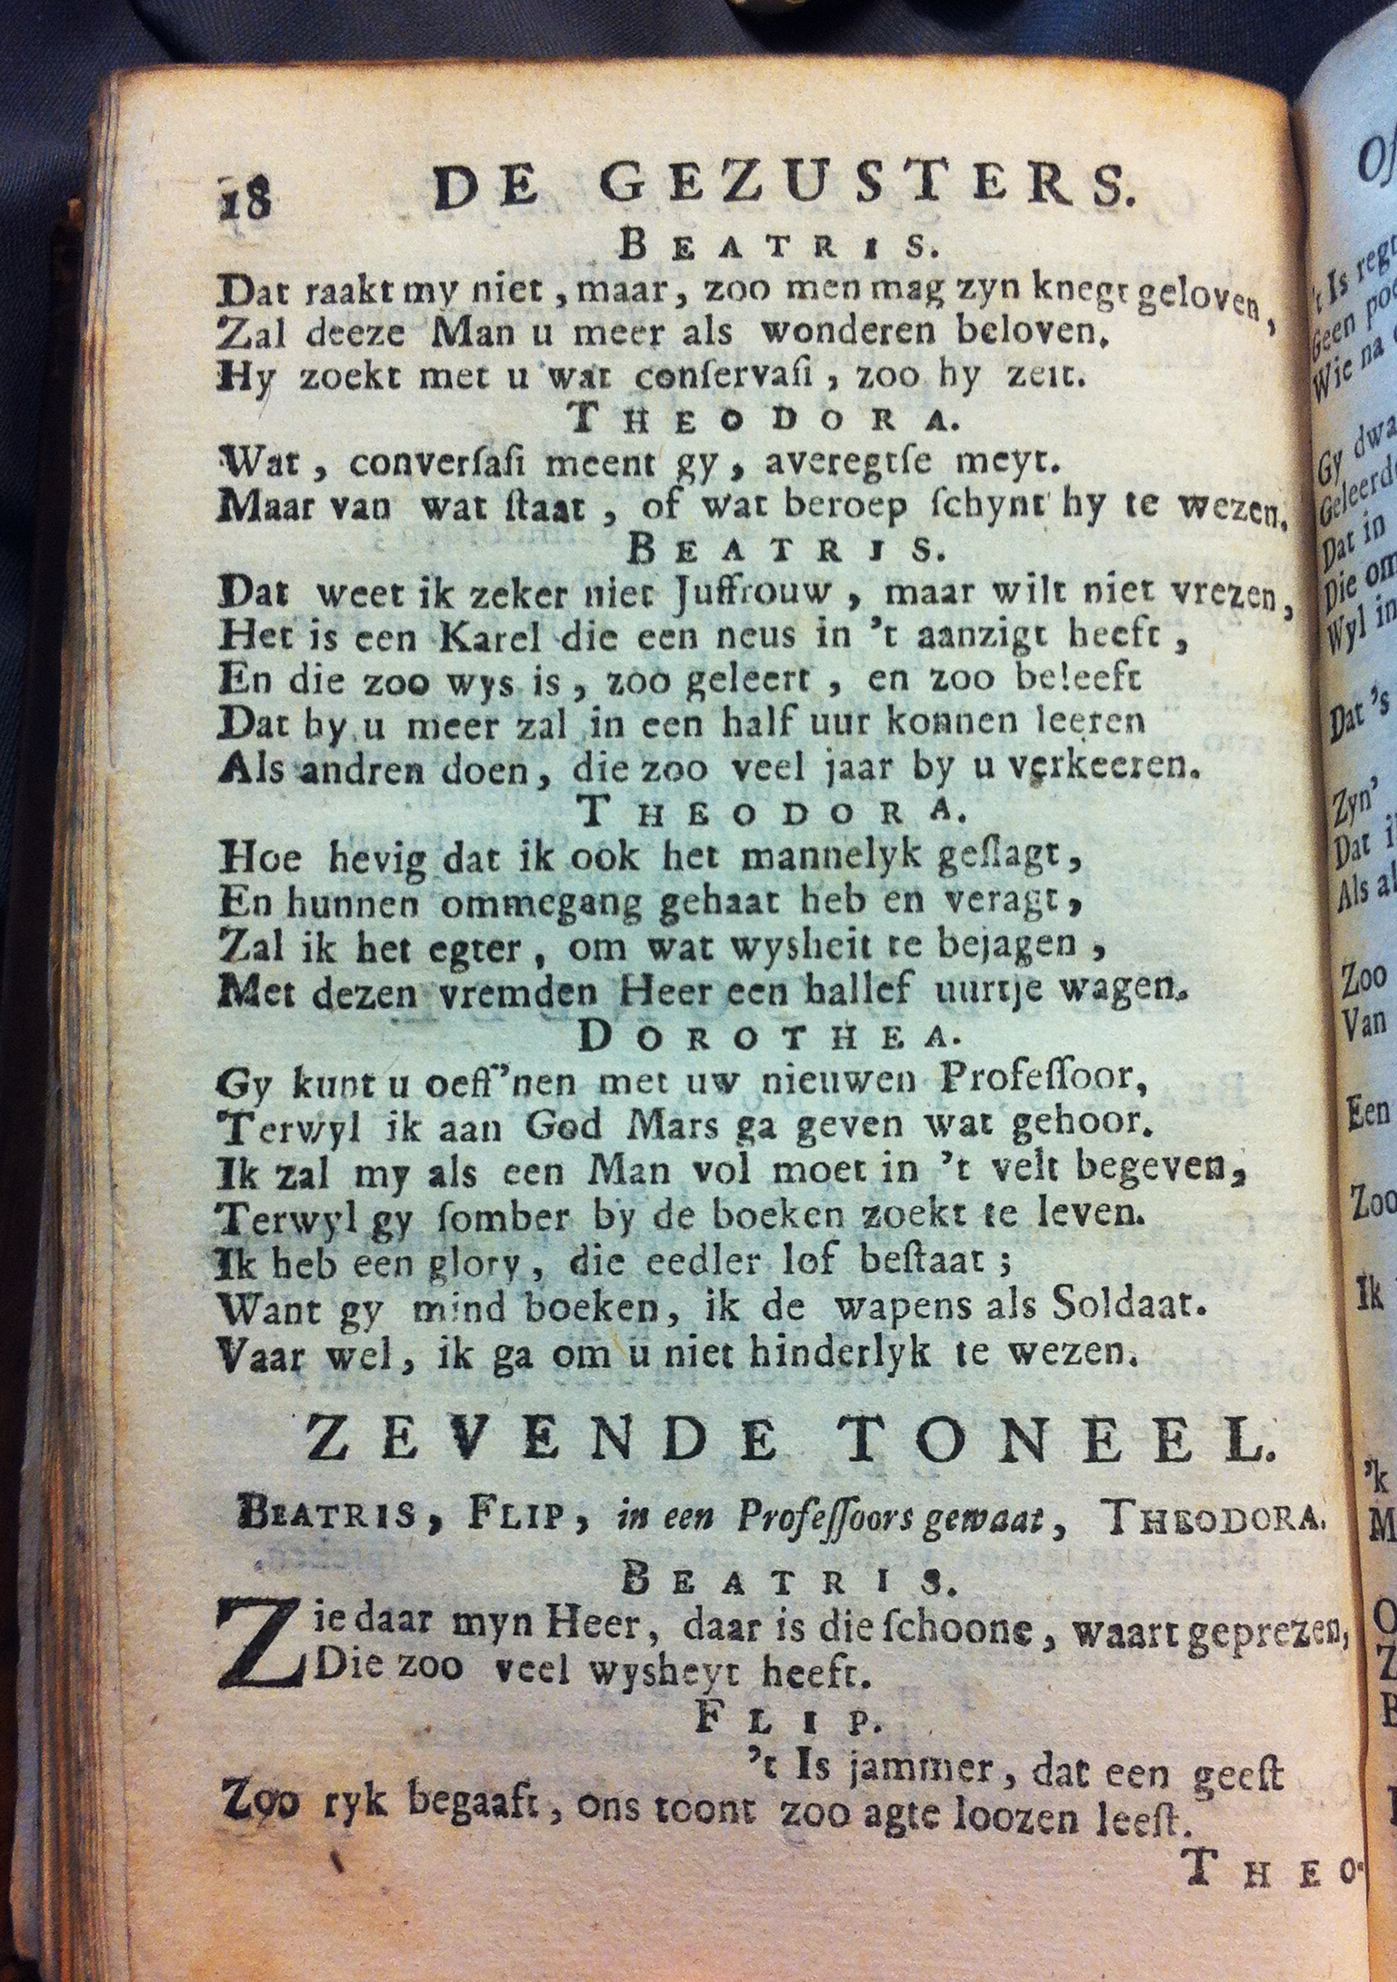 18 DE GEZUSTERS.
BEATRIS.
Dat raakt my niet, maar, zoo men mag zyn knegt geloven,
Zal deeze Man u meer als wonderen beloven.
Hy zoekt met u wat conſervaſi, zoo hy zeit.
THEODORA.
Wat, converſaſi meent gy, averegtſe meyt.
Maar van wat ſtaat, of wat beroep ſchynt hy te wezen.
BEATRIS.
Dat weet ik zeker niet Juffrouw, maar wilt niet vrezen,
Het is een Karel die een neus in 't aanzigt heeft,
En die zoo wys is, zoo geleert, en zoo beleeft
Dat hy u meer zal in een half uur konnen leeren
Als andren doen, die zoo veel jaar by u verkeeren.
THEODORA.
Hoe hevig dat ik ook het mannelyk geſlagt,
En hunnen ommegang gehaat heb en veragt,
Zal ik het egter, om wat wysheit te bejagen,
Met dezen vremden Heer een hallef uurtje wagen.
DOROTHEA.
Gy kunt u oeff'nen met uw nieuwen Profeſſoor,
Terwyl ik aan God Mars ga geven wat gehoor.
Ik zal my als een Man vol moet in 't velt begeven,
Terwyl gy ſomber by de boeken zoekt te leven.
Ik heb een glory, die eedler lof beſtaat;
Want gy mind boeken, ik de wapens als Soldaat.
Vaar wel, ik ga om u niet hinderlyk te wezen.
ZEVENDE TONEEL.
BEATRIS, FLIP, in een Profeſſoors gewaat, THEODORA.
BEATRIS.
Zie daar myn Heer, daar is die ſchoone, waart geprezen,
Die zoo veel wysheyt heeft.
FLIP.
't Is jammer, dat een geeſt
Zoo ryk begaaft, ons toont zoo agte loozen leeſt.
THEO-